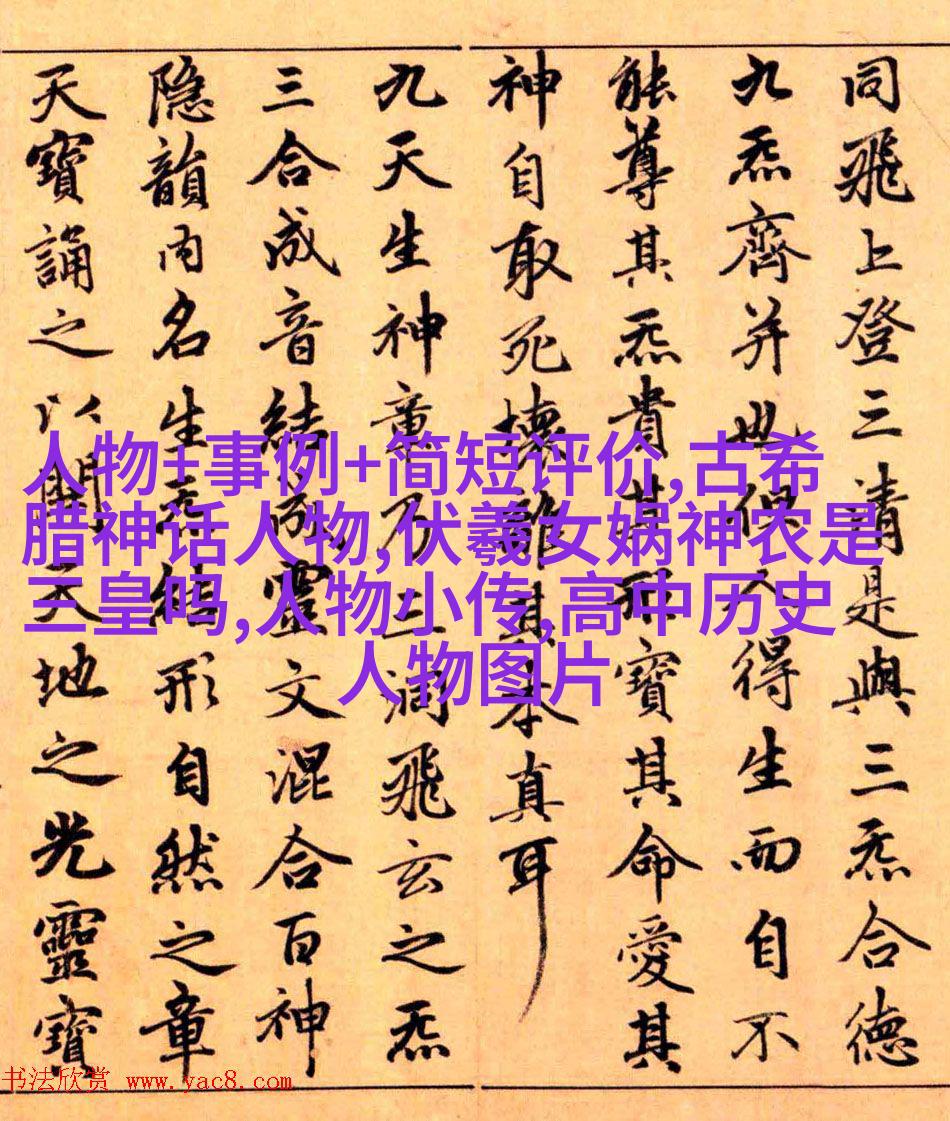 同飛上登三清是與三炁合德
九炁齊并也但人得生而自不
能尊其炁貴其形寶其命愛其
神自取死壞離其本真耳
九天生神章乃三洞飛玄之炁
三合成音結成靈文混合百神
隱韻內名生炁結形自然之章
天寶誦之以開天地之光靈寶
人物+事例+简短评价,古希
腊神话人物,伏羲女娲神农是
三皇吗,人物小传,高中历史
人物图片
书法欣赏 www.yac8.com